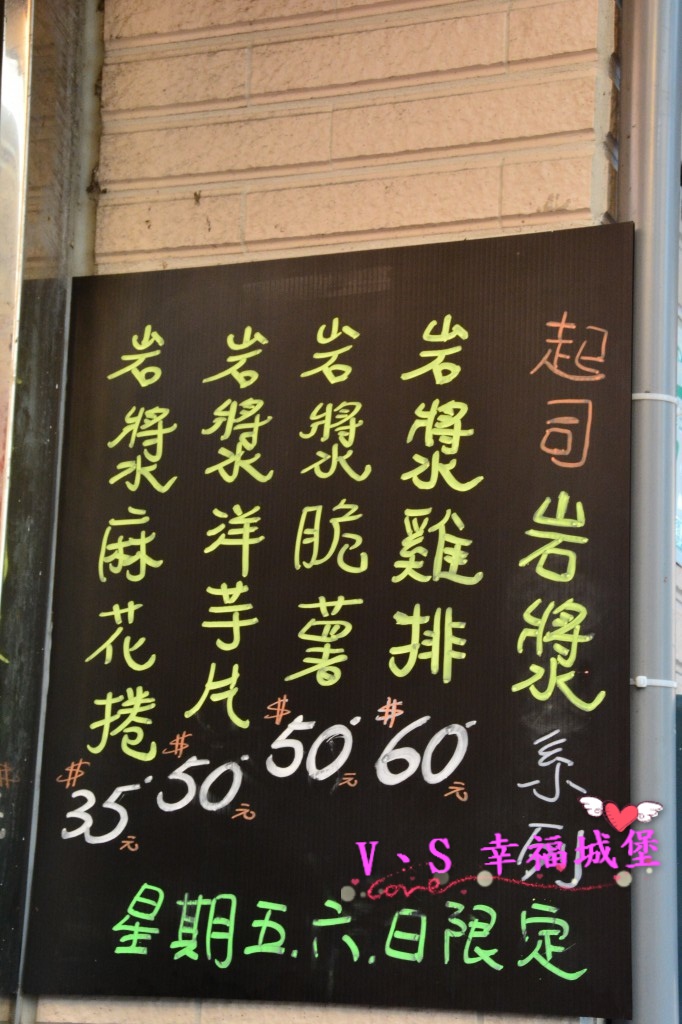 起司岩漿系列
岩漿雞排
$60元
岩漿脆薯
$50元
岩漿洋芋片
$50元
岩漿麻花捲
$35元
星期五.六.日限定
V、S 幸福城堡
Love